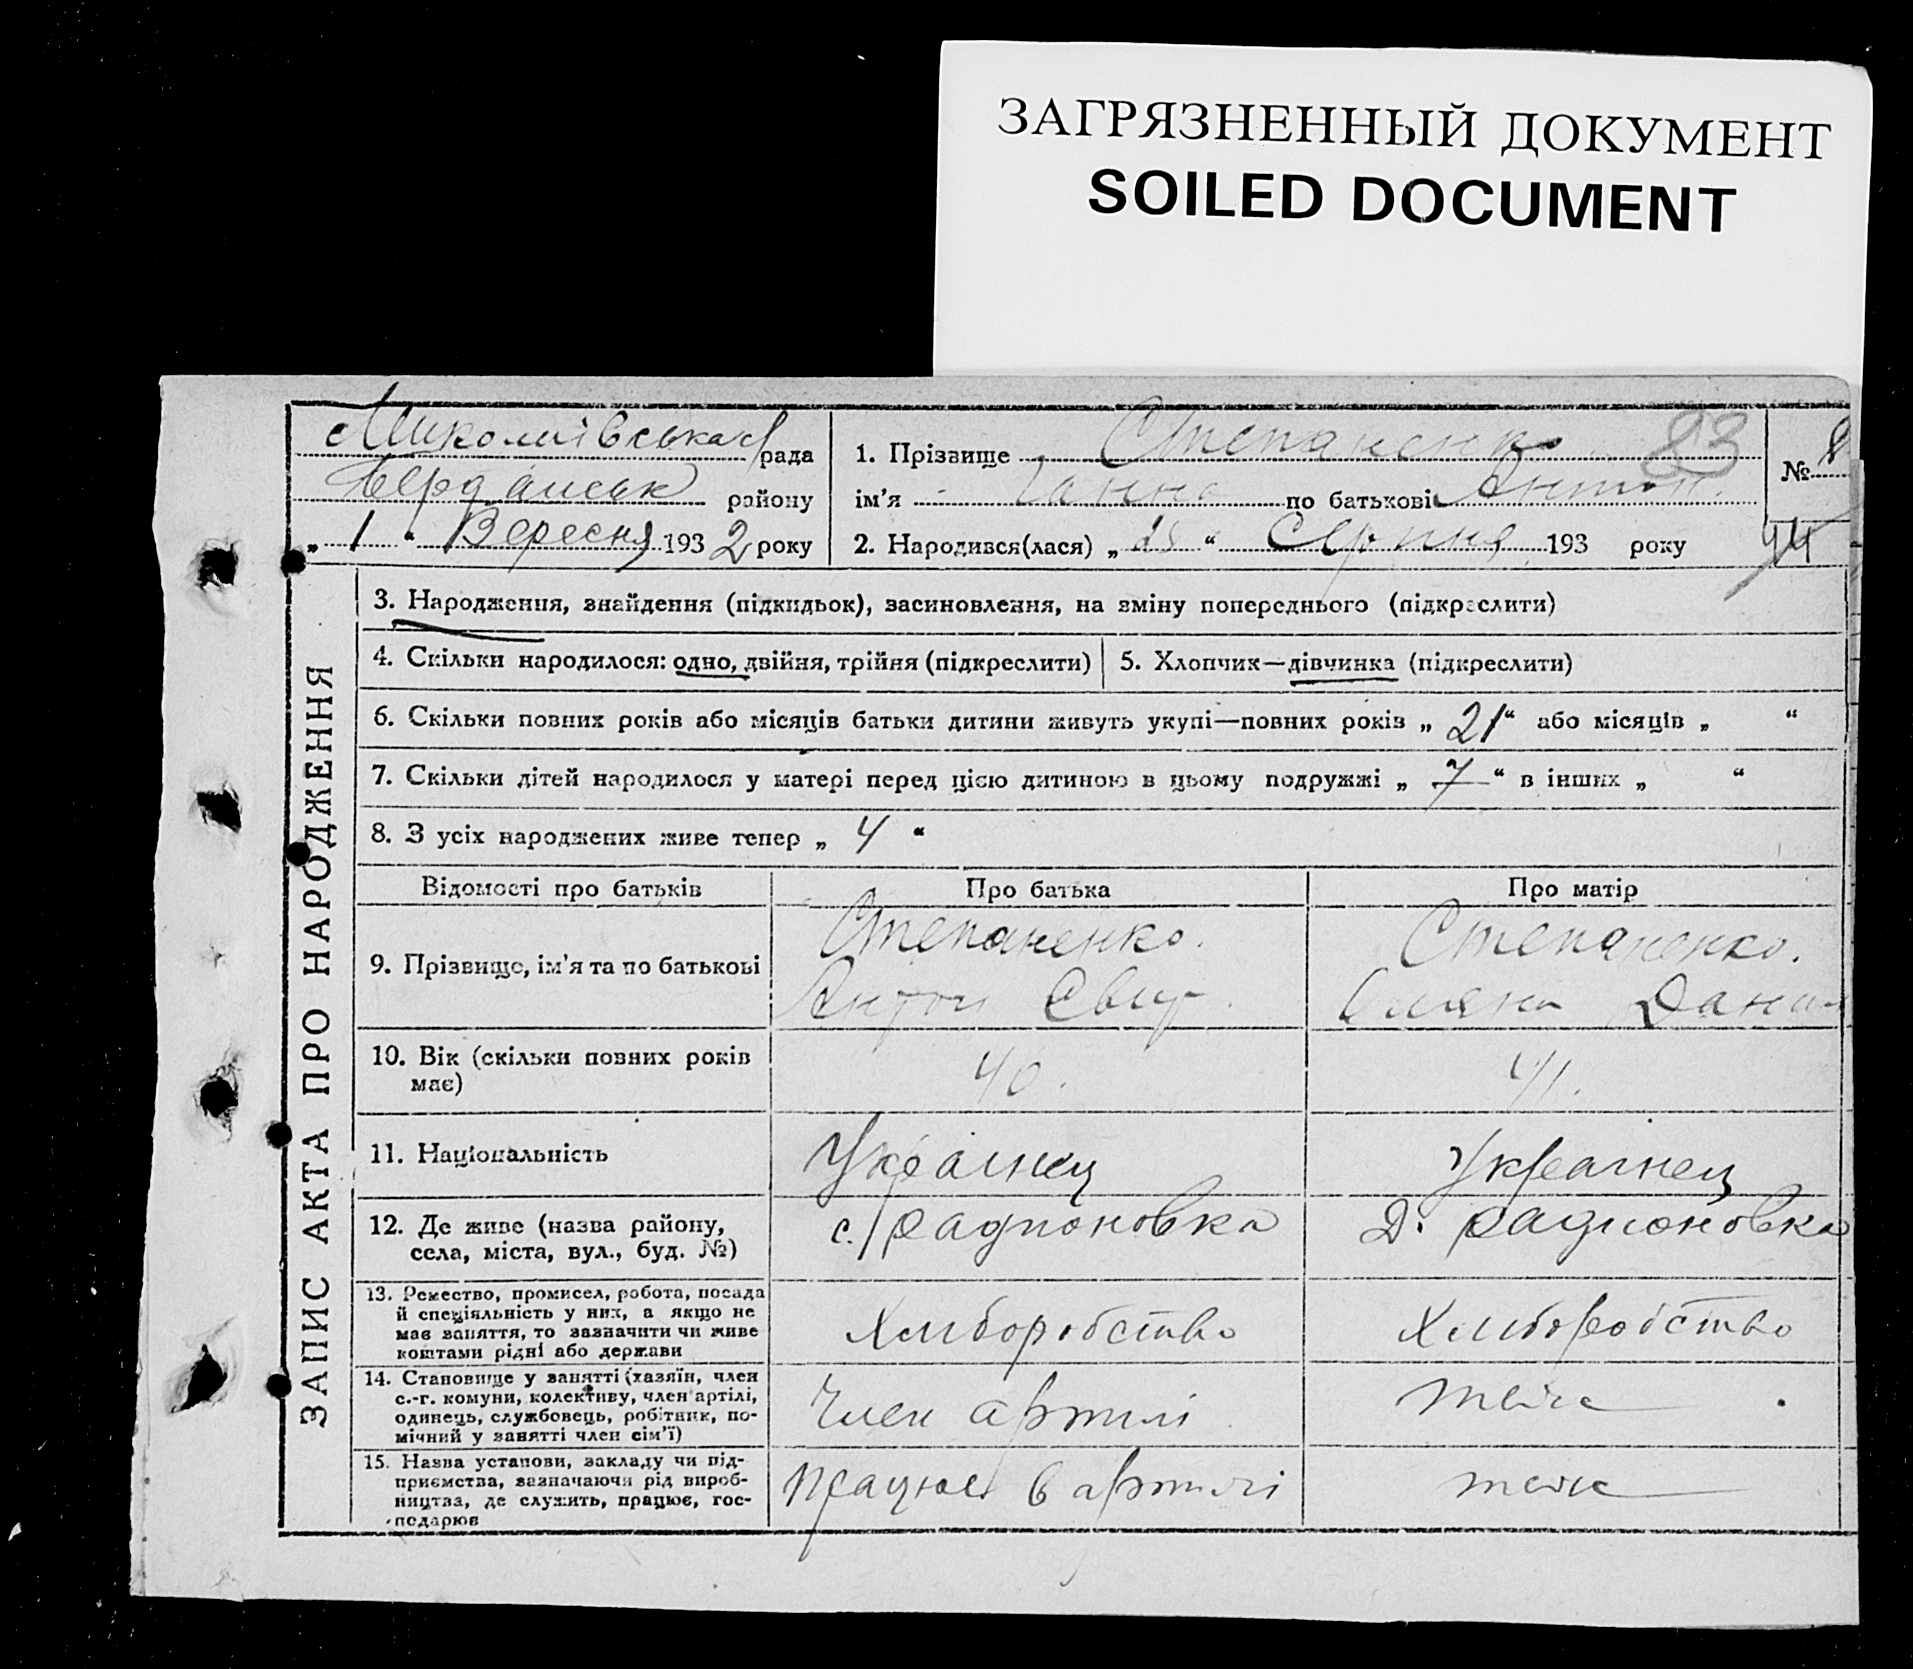 ЗАГРЯЗНЕННЫЙ ДОКУМЕНТ
SOILED DOCUMENT
Миколаївська рада
Бердянськ району
„ 1 “ Вересня 1932 року
1. Прізвище Степаненко 83
ім’я Ганна по батькові Антон.
2. Народився(лася) „ “ Серпня 193 року
№ 8
44
ЗАПИС АКТА ПРО НАРОДЖЕННЯ
3. Народження, знайдення (підкидьок), засиновлення, на зміну попереднього (підкреслити)
4. Скільки народилося: одно, двійня, трійня (підкреслити)
5. Хлопчик—дівчинка (підкреслити)
6. Скільки повних років або місяців батьки дитини живуть укупі—повних років „ 21 “ або місяців „ “
7. Скільки дітей народилося у матері перед цією дитиною в цьому подружжі „ 7 “ в інших „ “
8. З усіх народжених живе тепер „ 4 “
Відомості про батьків
Про батька
Про матір
9. Прізвище, ім’я та по батькові
Степаненко.
Антон
Степаненко.
10. Вік (скільки повних років
має)
40.
41.
11. Національність
Українец
Українец
12. Де живе (назва району,
села, міста, вул., буд. №)
с. Радионовка
Радионовка
13. Ремество, промисел, робота, посада
й спеціяльність у них, а якщо не
має заняття, то зазначити чи живе
коштами рідні або держави
Хлиборобство
Хлиборобство
14. Становище у занятті (хазяїн, член
с.-г. комуни, колективу, член артілі,
одинець, службовець, робітник, по-
мічний у занятті член сім’ї)
Член артилі
теж
15. Назва установи, закладу чи під-
приємства, зазначаючи рід вироб-
ництва, де служить, працює, гос-
подарює
працює в артилі
теж